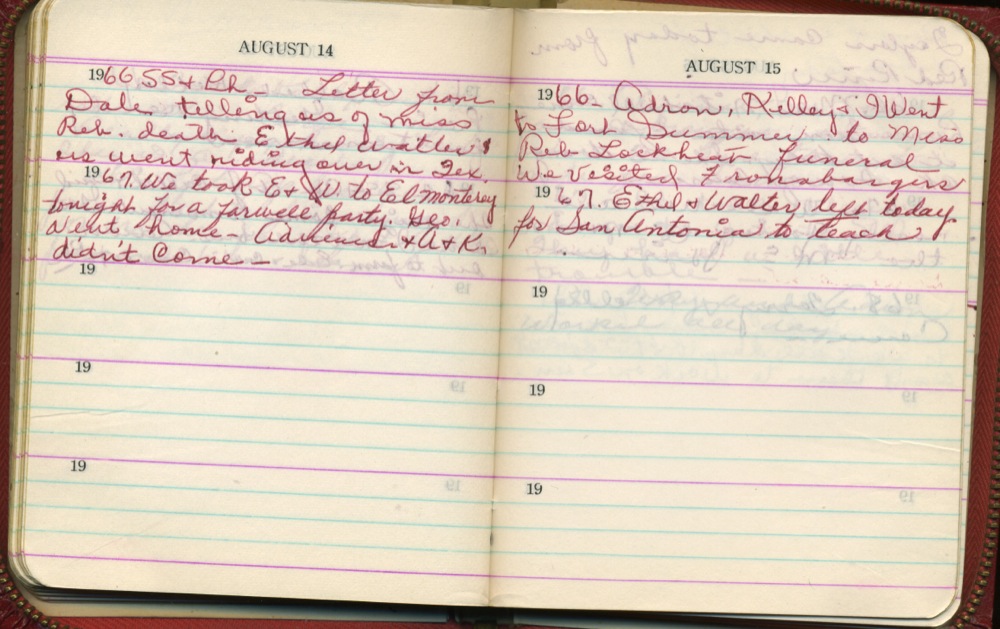 AUGUST 14
1966 SS & Ch - Letter from
Dale telling us of Miss
Reb. death. Ethel Walter &
us went riding over in Tex.
1967. We took E & W to El Monterey
tonight for a farwell party. Geo.
went home - & A & K
didn't come -
19
19
19
AUGUST 15
1966 - Adron, Kelley & I Went
to Fort Summer to Miss
Reb Lockhear funeral
We visited Fronabargers
1967. Ethel & Walter left today
for San Antonia to teach
19
19
19